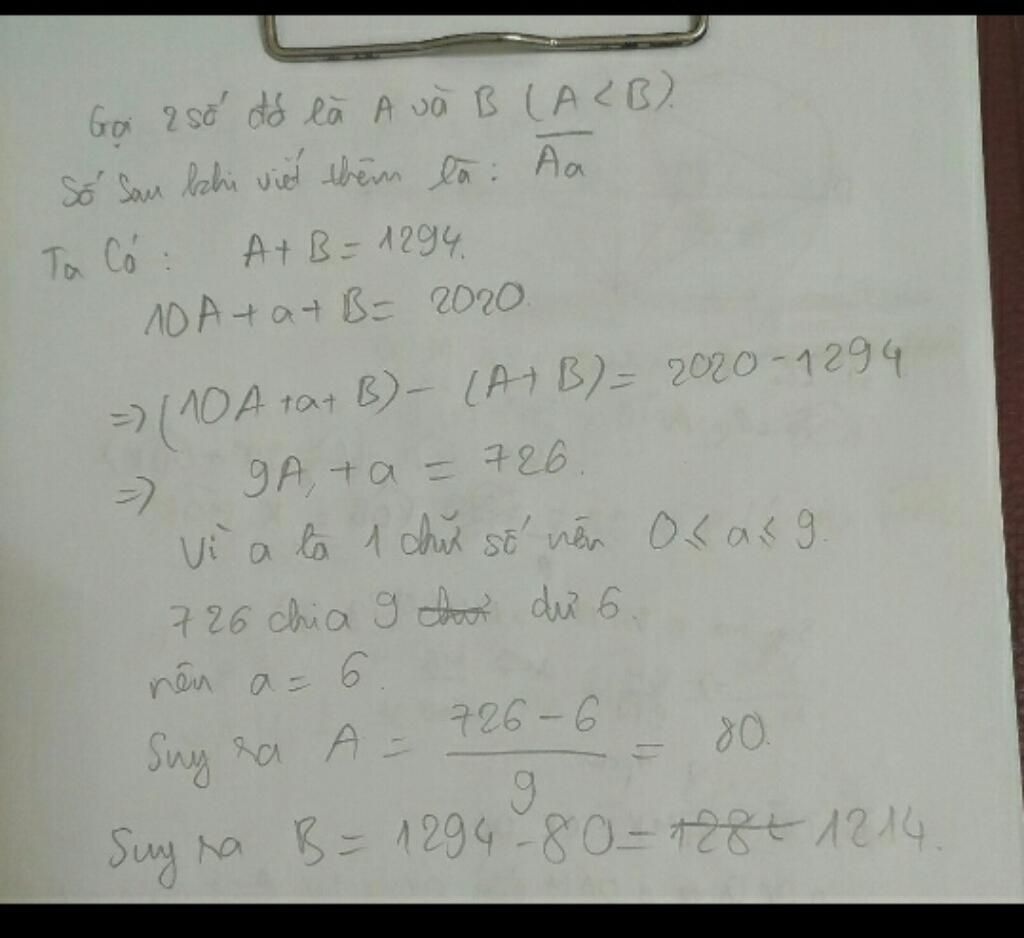 Gọi 2 số đó là A và B (A < B).
Số sau khi viết thêm là: \overline{Aa}
Ta Có: A + B = 1294.
10A + a + B = 2020.
=> (10A + a + B) - (A + B) = 2020 - 1294
=> 9A + a = 726.
Vì a là 1 chữ số nên 0 ≤ a ≤ 9.
726 chia 9 dư 6.
nên a = 6.
Suy ra A = \frac{726 - 6}{9} = 80.
Suy ra B = 1294 - 80 = 1214.